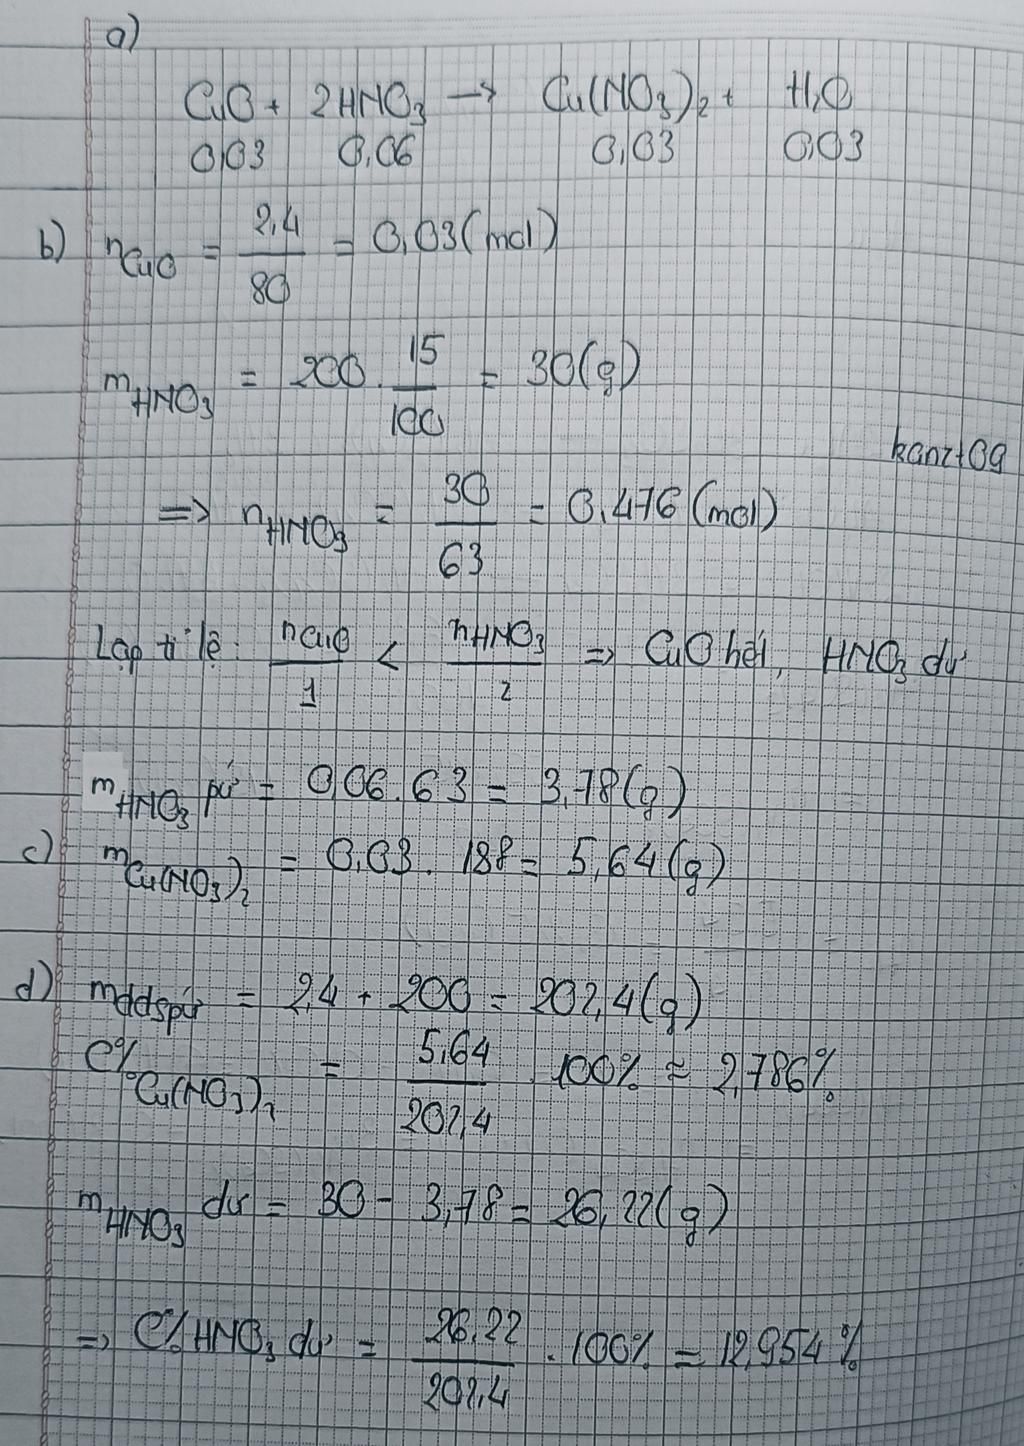 a)
CuO + 2HNO₃ → Cu(NO₃)₂ + H₂O
0,03 0,06 0,03 0,03
b) nCuO = 2,4/80 = 0,03 (mol)
mHNO₃ = 200 . 15/100 = 30 (g)
kanzt0g
=> nHNO₃ = 30/63 = 0,476 (mol)
Lập tỉ lệ: nCuO/1 < nHNO₃/2 => CuO hết, HNO₃ dư
mHNO₃ pứ = 0,06 . 63 = 3,78 (g)
c) mCu(NO₃)₂ = 0,03 . 188 = 5,64 (g)
d) mddspứ = 2,4 + 200 = 202,4 (g)
C%Cu(NO₃)₂ = 5,64/202,4 . 100% ≈ 2,786%
mHNO₃ dư = 30 - 3,78 = 26,22 (g)
=> C% HNO₃ dư = 26,22/202,4 . 100% = 12,954%